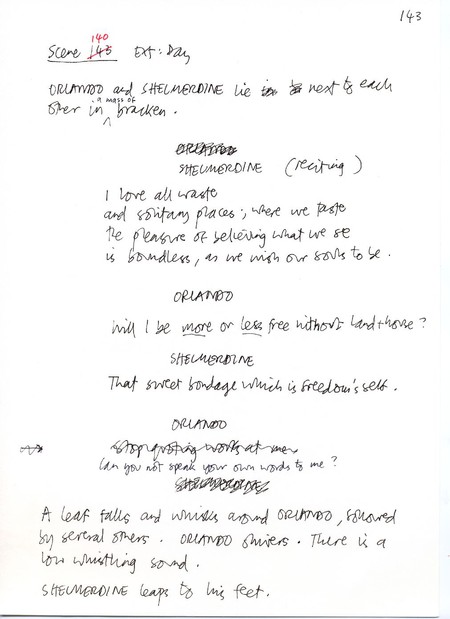 143
140
Scene 143 Ext: Day
ORLANDO and SHELMERDINE lie next to each
a mass of
other in bracken.
ORLANDO
SHELMERDINE (reciting)
I love all waste
and solitary places; where we taste
the pleasure of believing what we see
is boundless, as we wish our souls to be.
ORLANDO
Will I be more or less free without land + house?
SHELMERDINE
That sweet bondage which is Freedom's self.
ORLANDO
Stop quoting words at me
Can you not speak your own words to me?
A leaf falls and whisks around ORLANDO, followed
by several others. ORLANDO shivers. There is a
low whistling sound.
SHELMERDINE leaps to his feet.